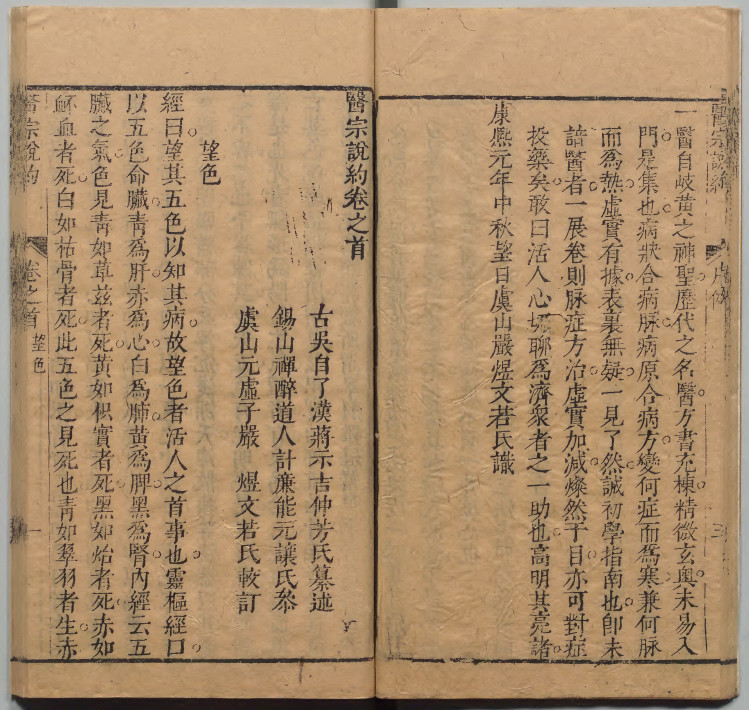 醫宗說約
一醫自岐黃之神聖歷代之名醫方書充棟精微玄奧未易入
門是集也病狀合病脉病原合病方變何症而爲寒兼何脉
而爲熱虛實有據表裏無疑一見了然誠初學指南也卽未
諳醫者一展卷則脉症方治虛實加減燦然于目亦可對症
投藥矣敢曰活人心堀聊爲濟衆者之一助也高明其亮諸
康熙元年中秋望日虞山嚴煜文若氏識
醫宗說約卷之首
古吳自了漢蔣示吉仲芳氏纂述
錫山禪醉道人計廉能元讓氏叅
虞山元虛子嚴煜文若氏較訂
望色
經曰望其五色以知其病故望色者活人之首事也靈樞經曰
以五色命臟靑爲肝赤爲心白爲肺黃爲脾黑爲腎內經云五
臟之氣色見靑如草玆者死黃如枳實者死黑如炲者死赤如
衃血者死白如枯骨者死此五色之見死也靑如翠羽者生赤
醫宗說約
卷之首
望色
一